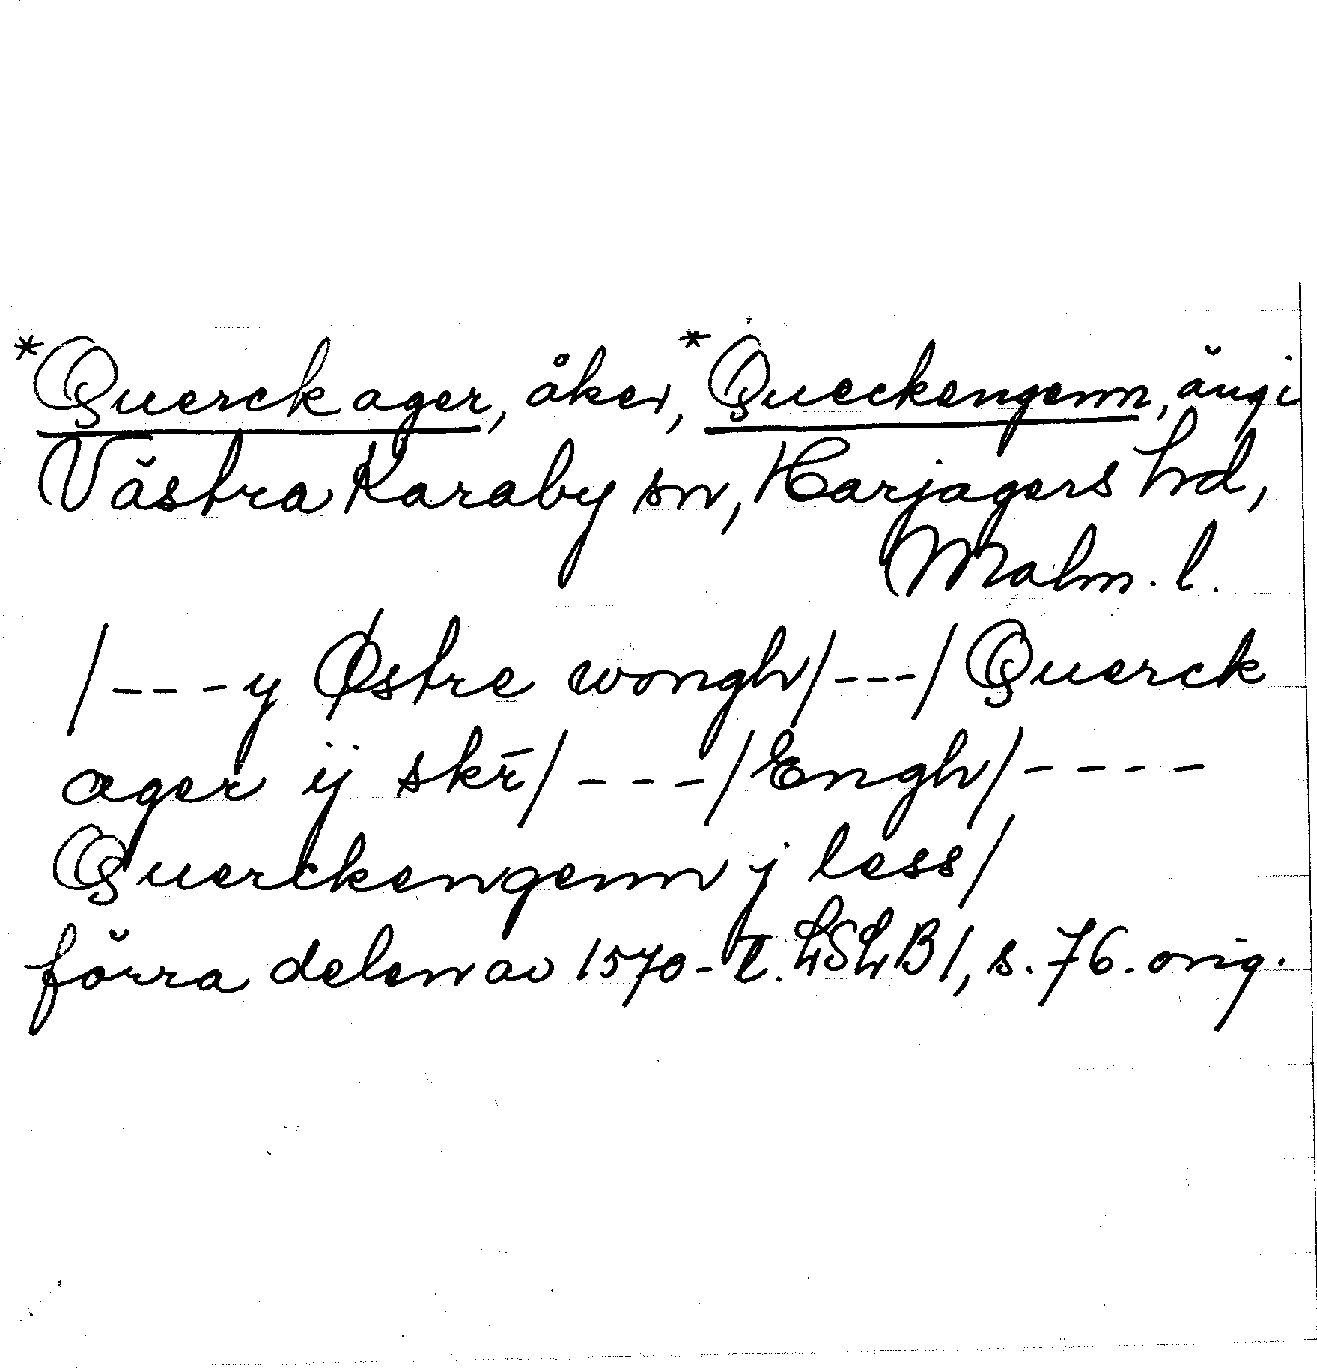 *Querck ager, åker, *Queckengenn, äng i
Västra Karaby sn, Harjagers hd,
Malm. l.
/---y Østre wongh/---/Querck
ager ij skr̄/---/Engh/----
Querckengenn j less/
förra delen av 1570-t. LSLB1, s. 76. orig.